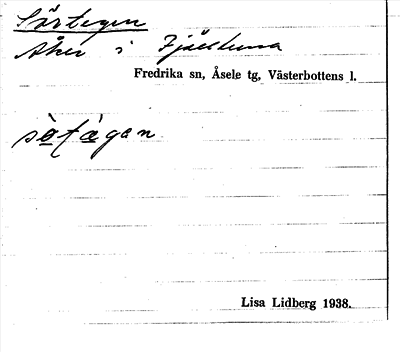 Sörtegen
Åker i Fjälltuna
Fredrika sn, Åsele tg, Västerbottens l.
Lisa Lidberg 1938.